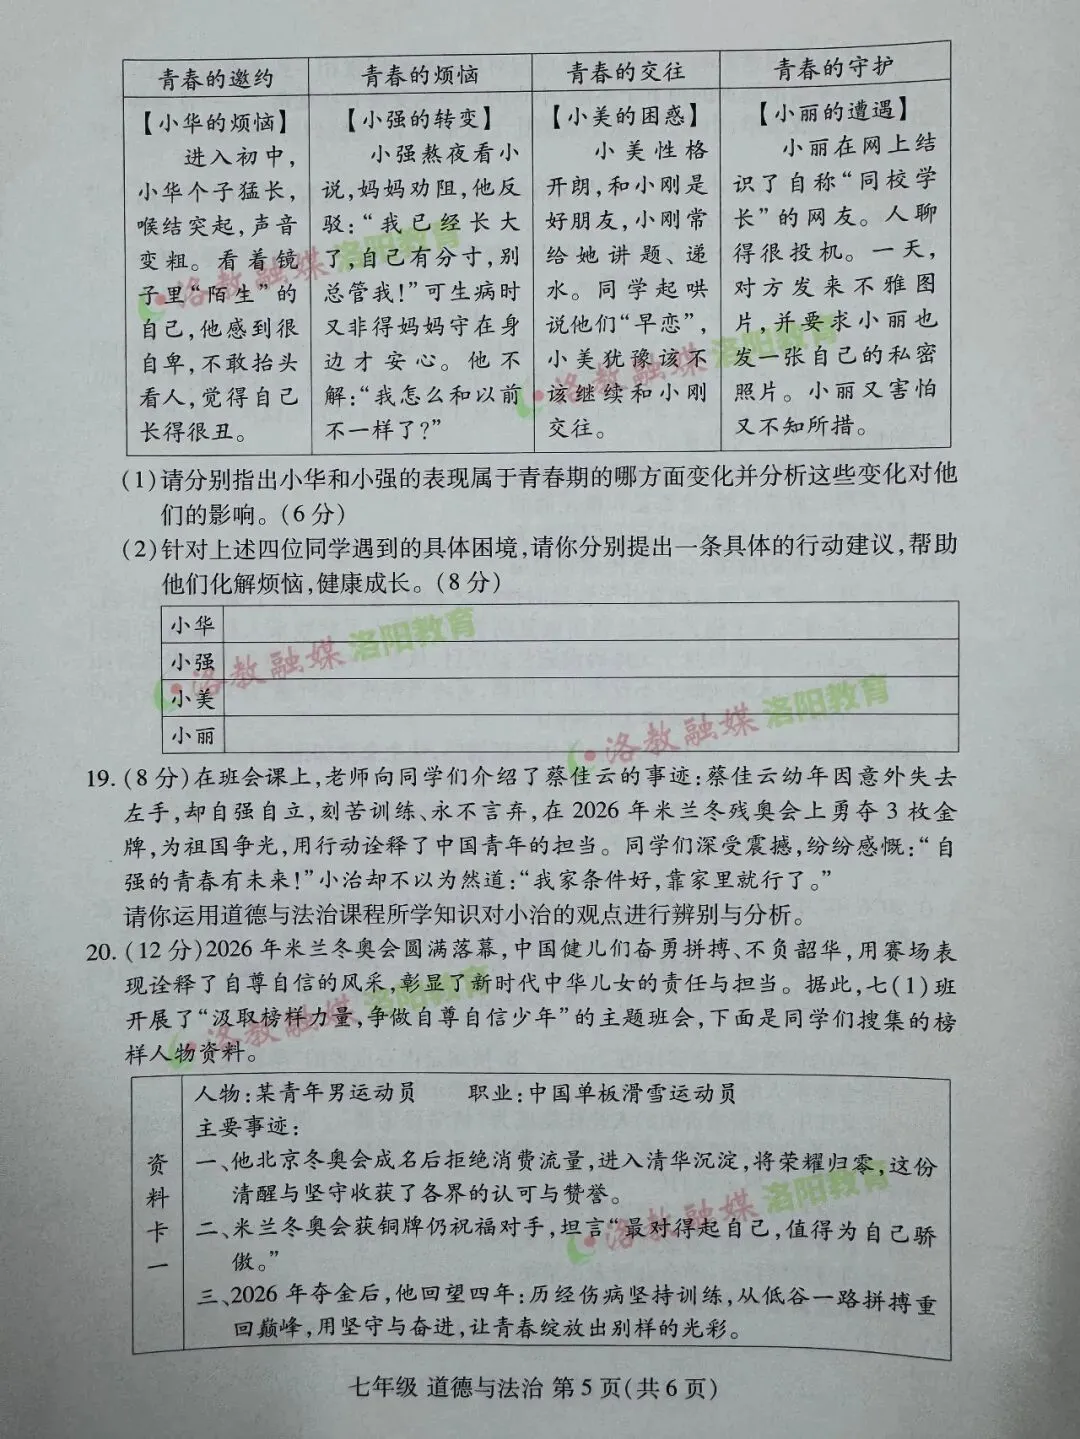 青春的邀约 青春的烦恼 青春的交往 青春的守护
【小华的烦恼】
进入初中，
小华个子猛长，
喉结突起，声音
变粗。看着镜
子里“陌生”的
自己，他感到很
自卑，不敢抬头
看人，觉得自己
长得很丑。
【小强的转变】
小强熬夜看小
说，妈妈劝阻，他反
驳：“我已经长大
了，自己有分寸，别
总管我！”可生病时
又非得妈妈守在身
边才安心。他不
解：“我怎么和以前
不一样了？”
【小美的困惑】
小美性格
开朗，和小刚是
好朋友，小刚常
给她讲题、递
水。同学起哄
说他们“早恋”，
小美犹豫该不
该继续和小刚
交往。
【小丽的遭遇】
小丽在网上结
识了自称“同校学
长”的网友。人聊
得很投机。一天，
对方发来不雅图
片，并要求小丽也
发一张自己的私密
照片。小丽又害怕
又不知所措。
(1)请分别指出小华和小强的表现属于青春期的哪方面变化并分析这些变化对他
们的影响。(6分)
(2)针对上述四位同学遇到的具体困境，请你分别提出一条具体的行动建议，帮助
他们化解烦恼，健康成长。(8分)
小华
小强
小美
小丽
19.(8分)在班会课上，老师向同学们介绍了蔡佳云的事迹：蔡佳云幼年因意外失去
左手，却自强自立，刻苦训练、永不言弃，在2026年米兰冬残奥会上勇夺3枚金
牌，为祖国争光，用行动诠释了中国青年的担当。同学们深受震撼，纷纷感慨：“自
强的青春有未来！”小治却不以为然道：“我家条件好，靠家里就行了。”
请你运用道德与法治课程所学知识对小治的观点进行辨别与分析。
20.(12分)2026年米兰冬奥会圆满落幕，中国健儿们奋勇拼搏、不负韶华，用赛场表
现诠释了自尊自信的风采，彰显了新时代中华儿女的责任与担当。据此，七(1)班
开展了“汲取榜样力量，争做自尊自信少年”的主题班会，下面是同学们搜集的榜
样人物资料。
资料卡一
人物：某青年男运动员 职业：中国单板滑雪运动员
主要事迹：
一、他北京冬奥会成名后拒绝消费流量，进入清华沉淀，将荣耀归零，这份
清醒与坚守收获了各界的认可与赞誉。
二、米兰冬奥会获铜牌仍祝福对手，坦言“最对得起自己，值得为自己骄
傲。”
三、2026年夺金后，他回望四年：历经伤病坚持训练，从低谷一路拼搏重
回巅峰，用坚守与奋进，让青春绽放出别样的光彩。
七年级 道德与法治 第5页(共6页)
洛教融媒 洛阳教育
洛教融媒 洛阳教育
洛教融媒 洛阳教育
洛教融媒 洛阳教育
洛教融媒 洛阳教育
洛教融媒 洛阳教育